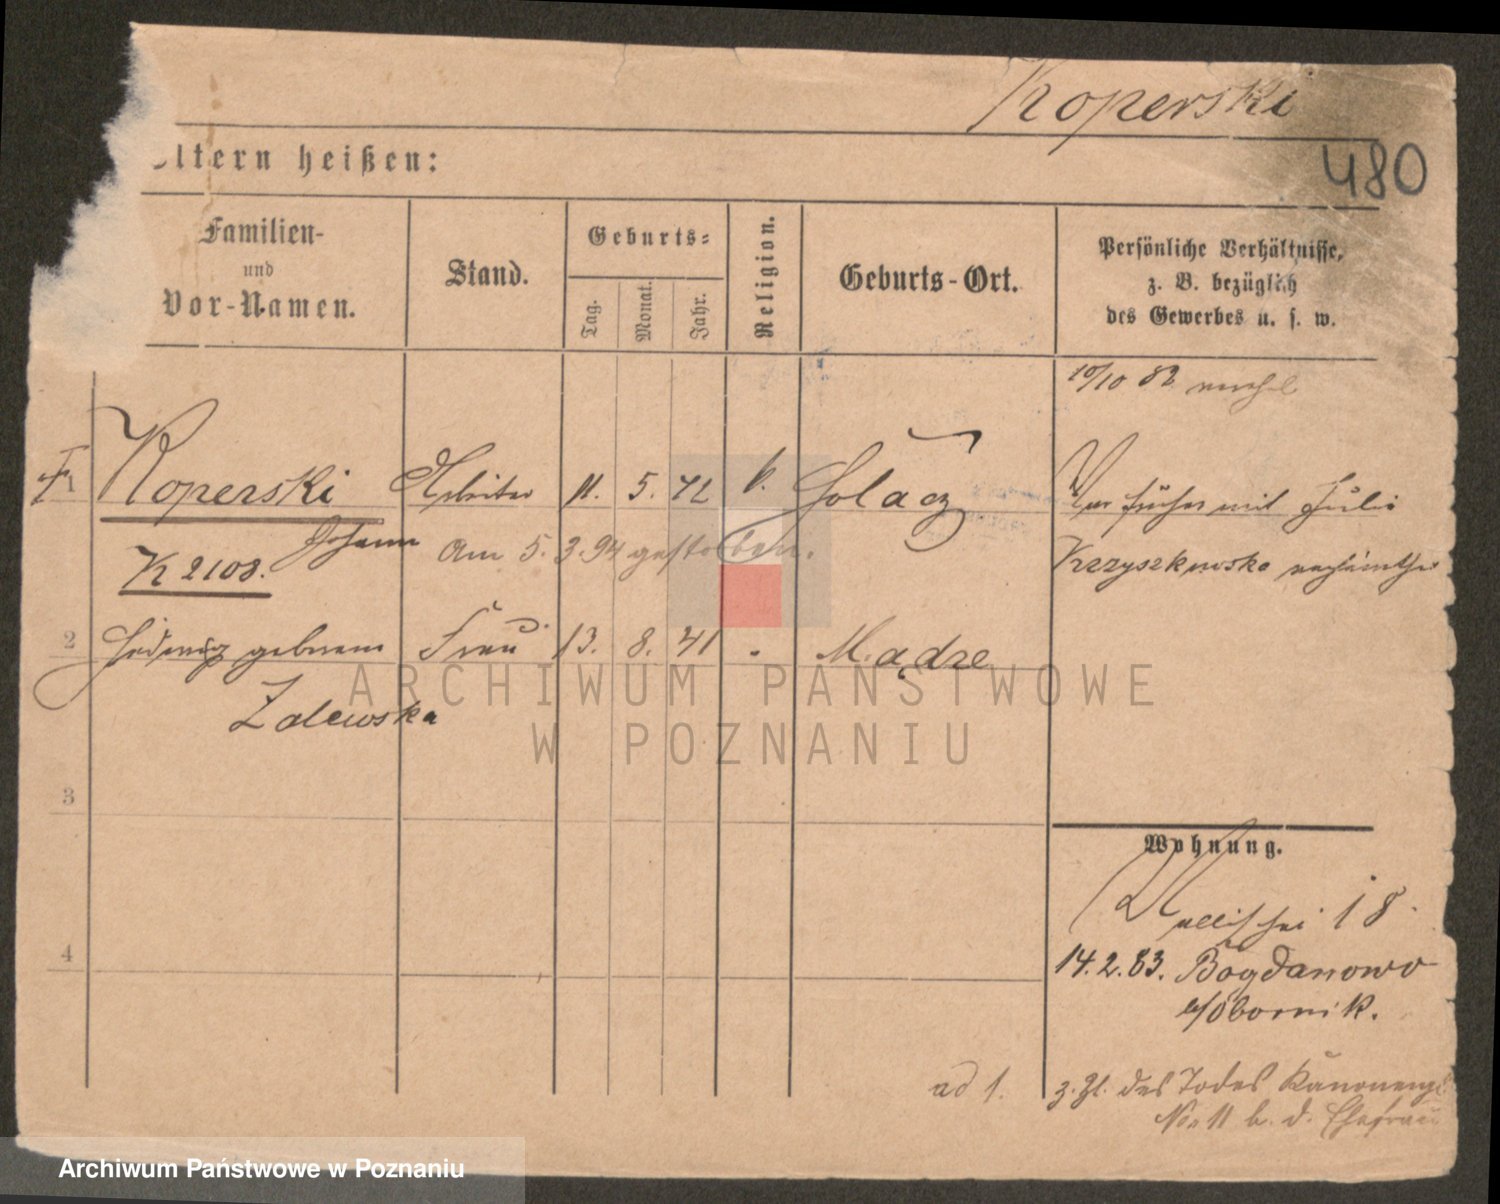 Koperski
480
ltern heißen:
Familien-
und
Vor-Namen.
Stand.
Geburts-
Tag.
Monat.
Jahr.
Religion.
Geburts-Ort.
Persönliche Verhältnisse,
z. B. bezüglich
des Gewerbes u. s. w.
10/10 82
1 Koperski Arbeiter 11. 5. k. Solacz War früher mit Julie
Johann Am 5. 3. 94 gestorben. Krzyszkowska
K 2108.
2 Hedwig geborene Frau 13. 8. 41 Mądre
Zalewska
ARCHIWUM PAŃSTWOWE
W POZNANIU
3
Wohnung.
Wallischei 18
4
14. 2. 83. Bogdanowo
b/Obornik.
ad 1. z. Zt. des Todes Kanonenpl
No 11 b. d. Ehefrau
Archiwum Państwowe w Poznaniu